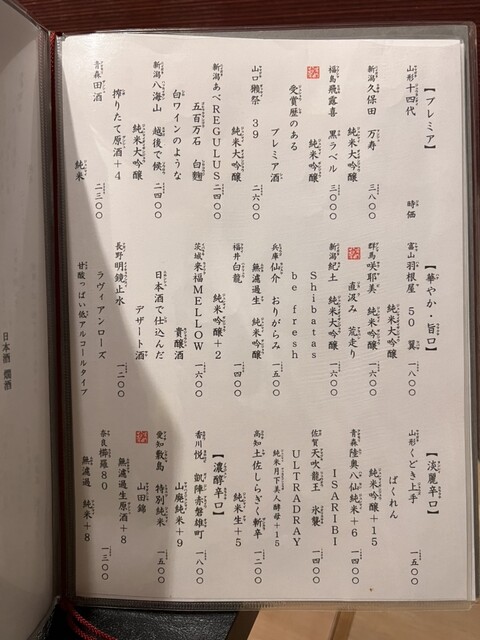 【プレミア】
山形 十四代 時価
新潟 久保田 万寿
純米大吟醸 三八〇〇
福島 飛露喜 黒ラベル
純米吟醸 三〇〇〇
受賞歴のある
プレミア酒
山口 獺祭 39
純米大吟醸 二六〇〇
新潟 あべREGULUS 二四〇〇
五百万石 白麹
白ワインのような
新潟 八海山 越後で候
純米大吟醸 二四〇〇
搾りたて原酒+4
青森 田酒
純米 二三〇〇
【華やか・旨口】
富山 羽根屋 50 翼
純米大吟醸 一八〇〇
群馬 咲耶美 純米吟醸 一六〇〇
直汲み 荒走り
新潟 紀土 純米大吟醸 一六〇〇
Shibatas
be fresh
兵庫 仙介 おりがらみ 一五〇〇
無濾過生 純米吟醸
福井 白龍
純米吟醸+2 一四〇〇
茨城 来福MELLOW 一六〇〇
貴醸酒
日本酒で仕込んだ
デザート酒
長野 明鏡止水
ラヴィアンローズ 一二〇〇
甘酸っぱい低アルコールタイプ
【淡麗辛口】
山形 くどき上手 一五〇〇
ばくれん
純米吟醸+15
青森 陸奥八仙 純米+6 一四〇〇
ISARIBI
佐賀 天吹 龍王 氷襲 一四〇〇
ULTRADRAY
純米 月下美人酵母+15
高知 土佐しらぎく 斬辛 一二〇〇
純米生+5
【濃醇辛口】
香川 悦 凱陣 赤磐雄町 一八〇〇
山廃純米+9
愛知 敷島 特別純米 一五〇〇
山田錦
無濾過生原酒+8
奈良 櫛羅80 一三〇〇
無濾過 純米+8
日本酒 燗酒